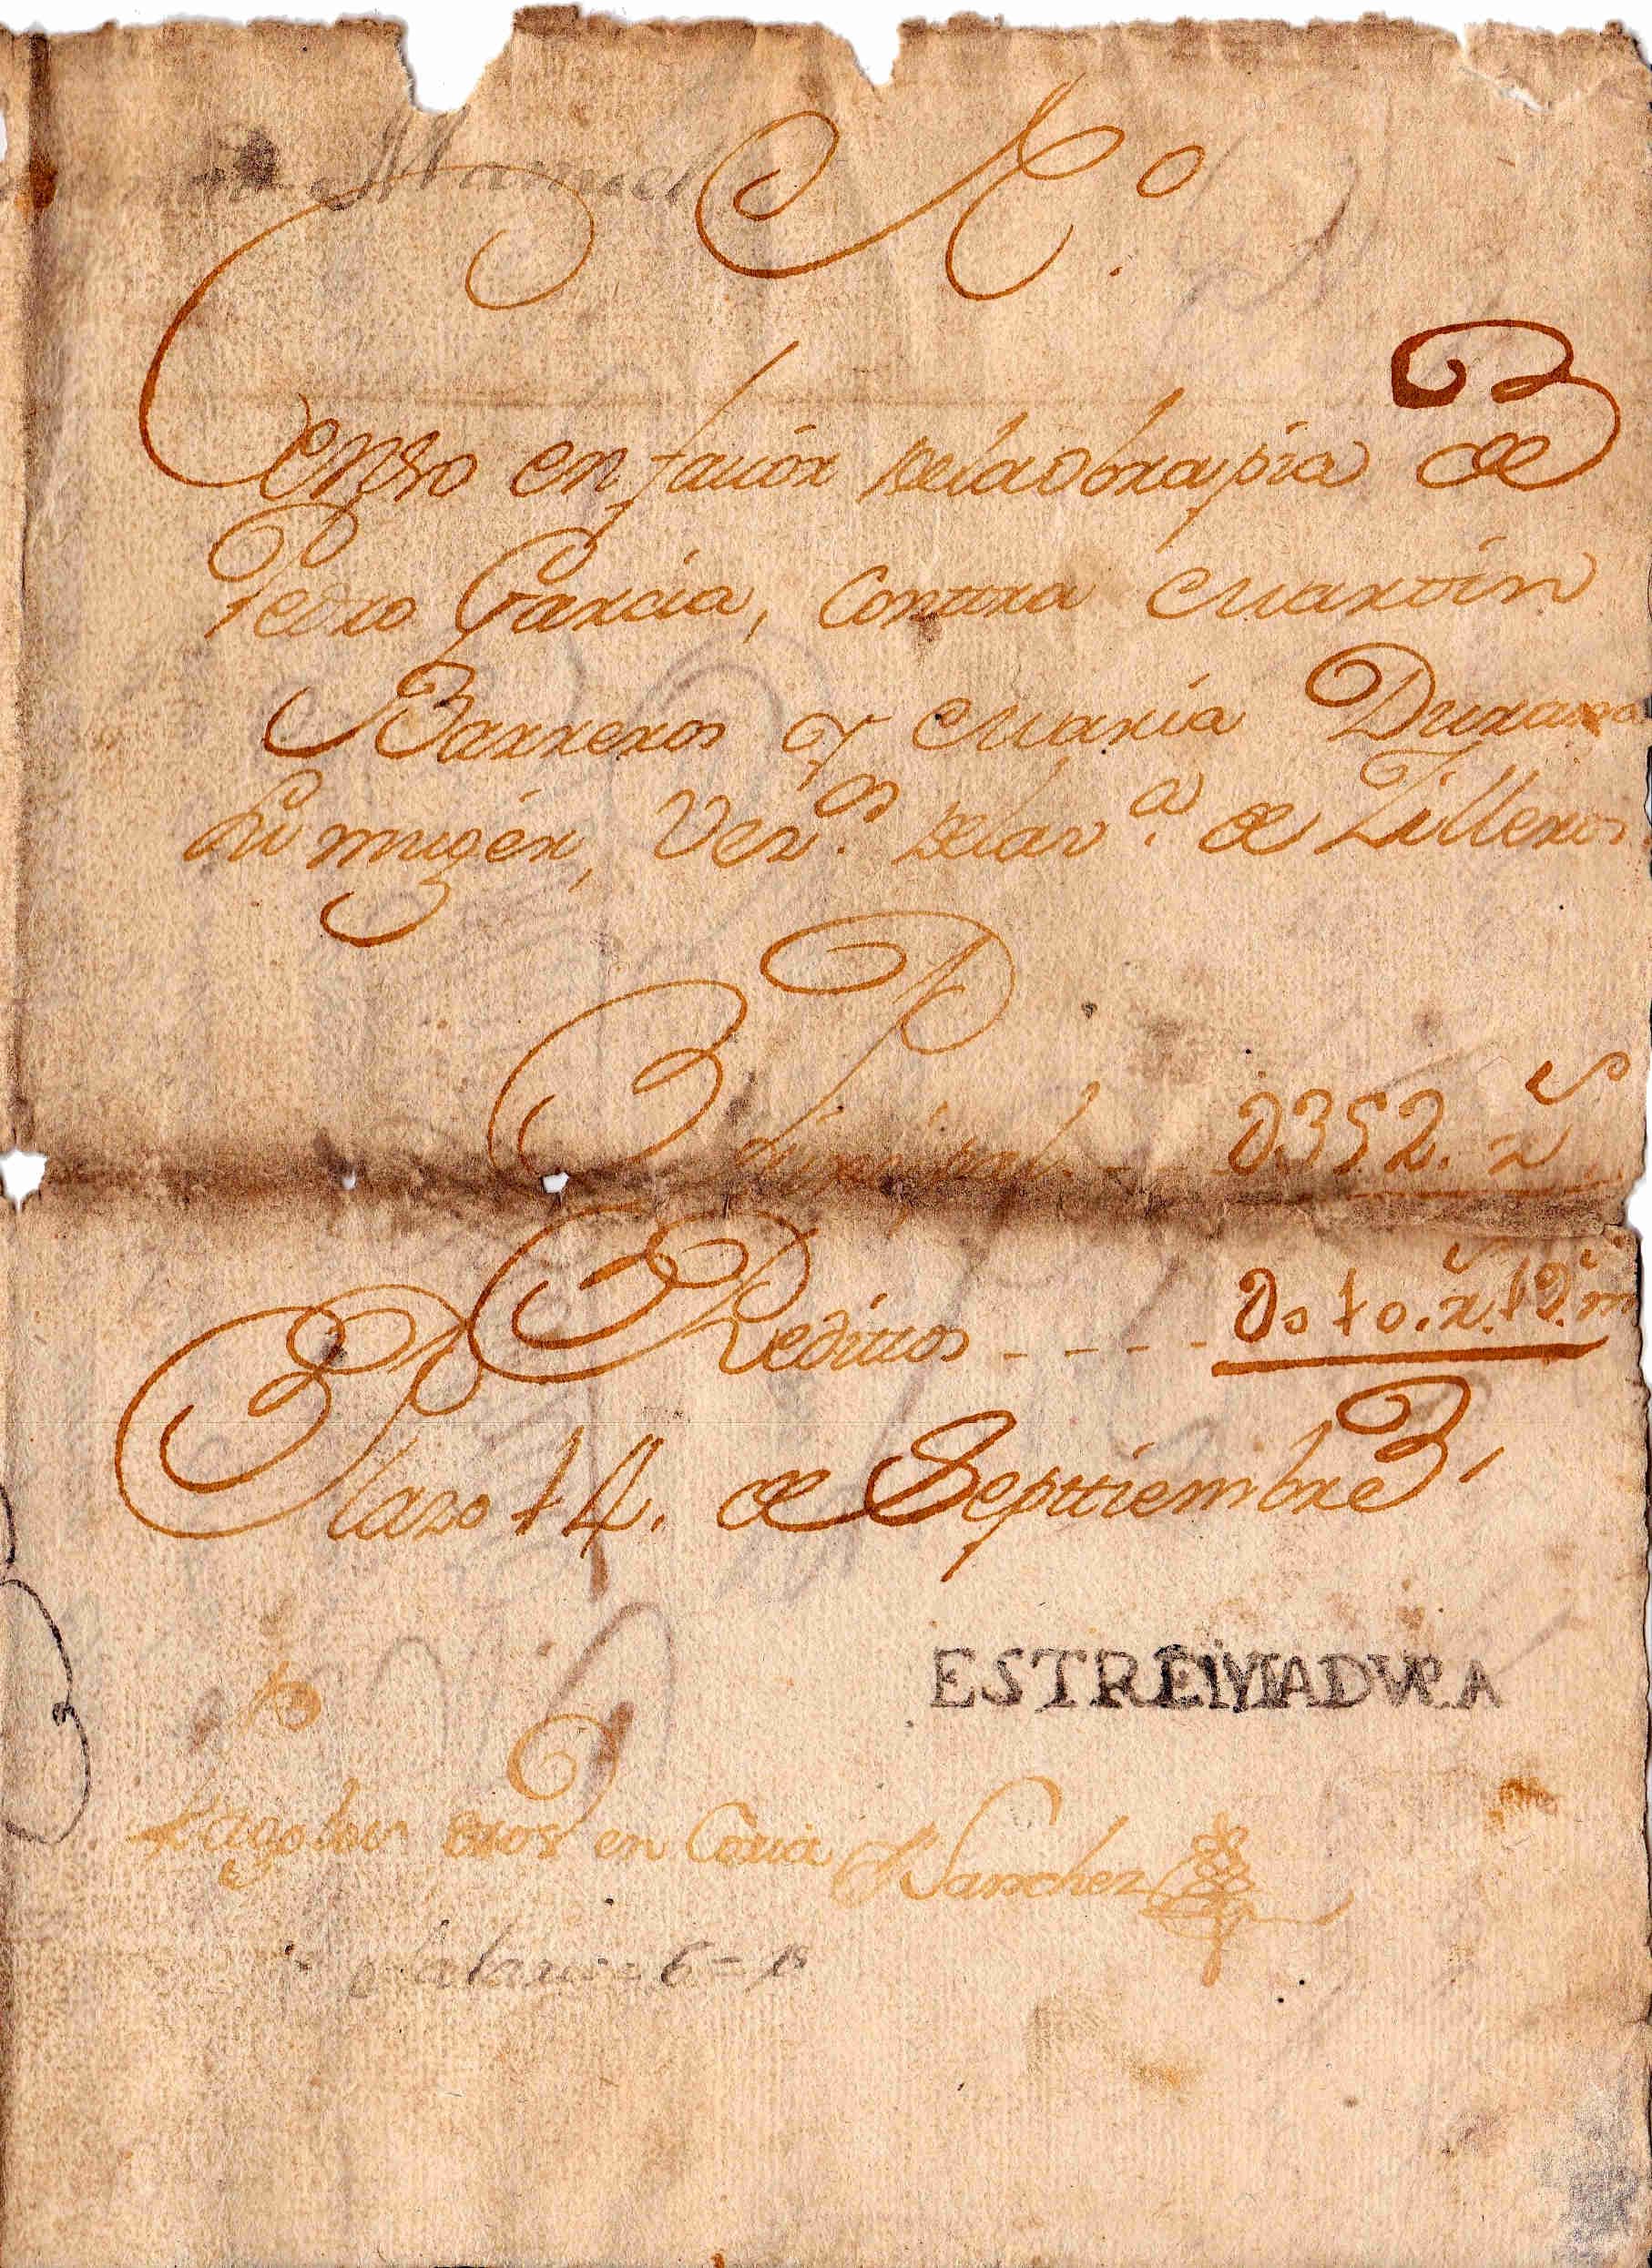 Manuel
N.º
Censo en favor dela Obrapia de
Pedro Garcia, Contra Martin
Barreros y Maria Durana
su muger, Vez.os dela v.a de Zilleros
Prinzipal - - 0352. r.s
Redittos - - - - 0010. r.s 19. m
Plazo 14. de Septtiembre
ESTREMADVRA
Pago en Coria Sanchez